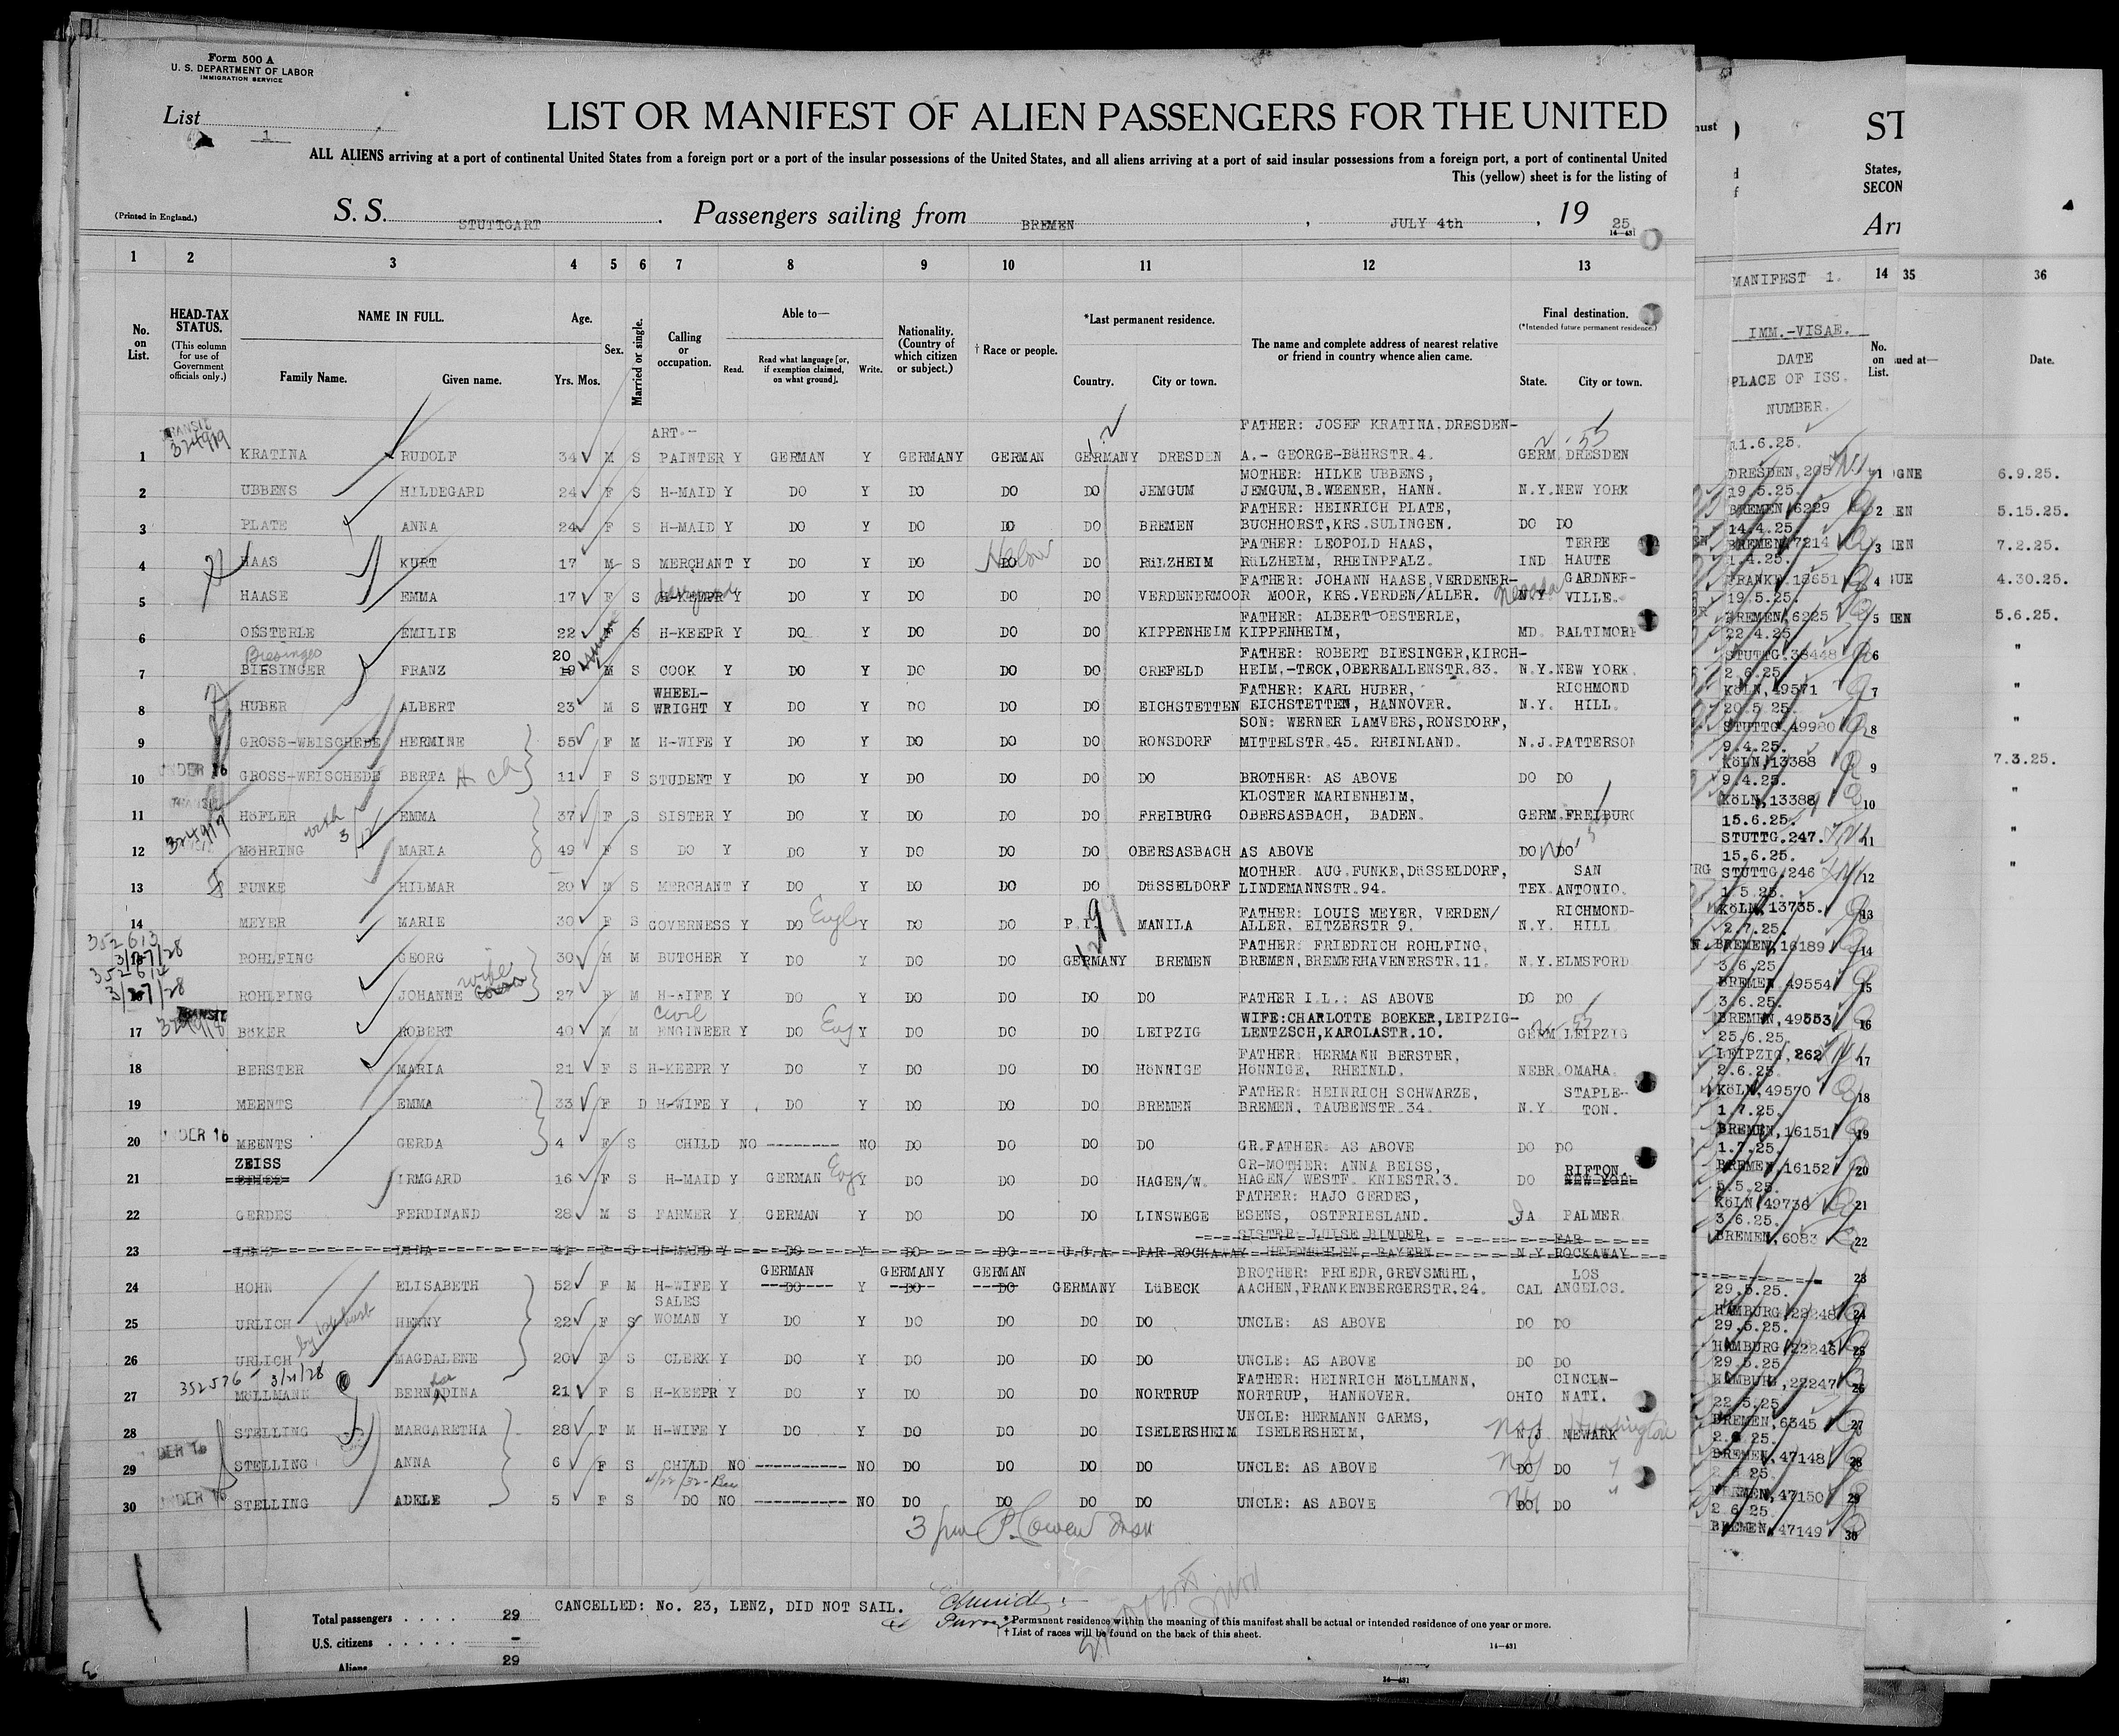 Form 500 A
U. S. DEPARTMENT OF LABOR
IMMIGRATION SERVICE
List 1
LIST OR MANIFEST OF ALIEN PASSENGERS FOR THE UNITED
ALL ALIENS arriving at a port of continental United States from a foreign port or a port of the insular possessions of the United States, and all aliens arriving at a port of said insular possessions from a foreign port, a port of continental United
This (yellow) sheet is for the listing of
(Printed in England.) S. S. STUTTGART . Passengers sailing from BREMEN , JULY 4th , 19 25
14-431
1 2 3 4 5 6 7 8 9 10 11 12 13
No. on List.
HEAD-TAX STATUS. (This column for use of Government officials only.)
NAME IN FULL.
Family Name. Given name.
Age.
Yrs. Mos.
Sex.
Married or single.
Calling or occupation.
Able to—
Read. Read what language [or, if exemption claimed, on what ground]. Write.
Nationality. (Country of which citizen or subject.)
† Race or people.
*Last permanent residence.
Country. City or town.
The name and complete address of nearest relative or friend in country whence alien came.
Final destination.
(*Intended future permanent residence.)
State. City or town.
TRANSIT 324919 ART.- FATHER: JOSEF KRATINA, DRESDEN-
1 KRATINA RUDOLF 34 M S PAINTER Y GERMAN Y GERMANY GERMAN GERMANY DRESDEN A.- GEORGE-BÄHRSTR.4. GERM. DRESDEN
MOTHER: HILKE UBBENS,
2 UBBENS HILDEGARD 24 F S H-MAID Y DO Y DO DO DO JEMGUM JEMGUM, B.WEENER, HANN. N.Y. NEW YORK
FATHER: HEINRICH PLATE,
3 PLATE ANNA 24 F S H-MAID Y DO Y DO DO DO BREMEN BUCHHORST, KRS.SULINGEN. DO DO
FATHER: LEOPOLD HAAS, TERRE
4 HAAS KURT 17 M S MERCHANT Y DO Y DO DO Hebrew DO RÜLZHEIM RÜLZHEIM, RHEINPFALZ. IND HAUTE
FATHER: JOHANN HAASE, VERDENER- GARDNER-
5 HAASE EMMA 17 F S H-KEEPR Y DO Y DO DO DO VERDENERMOOR MOOR, KRS.VERDEN/ALLER. N.Y. Nevada VILLE.
FATHER: ALBERT OESTERLE,
6 OESTERLE EMILIE 22 F S H-KEEPR Y DO Y DO DO DO KIPPENHEIM KIPPENHEIM, MD. BALTIMORE
Biesinger 20 FATHER: ROBERT BIESINGER, KIRCH-
7 BIESINGER FRANZ 19 M S COOK Y DO Y DO DO DO CREFELD HEIM.-TECK, OBEREALLENSTR.83. N.Y. NEW YORK.
WHEEL- FATHER: KARL HUBER, RICHMOND
8 HUBER ALBERT 23 M S WRIGHT Y DO Y DO DO DO EICHSTETTEN EICHSTETTEN, HANNOVER. N.Y. HILL.
SON: WERNER LAMVERS, RONSDORF,
9 GROSS-WEISCHEDE HERMINE 55 F M H-WIFE Y DO Y DO DO DO RONSDORF MITTELSTR.45. RHEINLAND. N.J. PATTERSON
10 UNDER 16 GROSS-WEISCHEDE BERTA 11 F S STUDENT Y DO Y DO DO DO DO BROTHER: AS ABOVE DO DO
TRANSIT KLOSTER MARIENHEIM,
11 HÖFLER EMMA 37 F S SISTER Y DO Y DO DO DO FREIBURG OBERSASBACH, BADEN. GERM. FREIBURG
12 324917 MÖHRING MARIA 49 F S DO Y DO Y DO DO DO OBERSASBACH AS ABOVE DO DO
MOTHER: AUG.FUNKE, DÜSSELDORF, SAN
13 FUNKE HILMAR 20 M S MERCHANT Y DO Y DO DO DO DÜSSELDORF LINDEMANNSTR.94. TEX. ANTONIO.
FATHER: LOUIS MEYER, VERDEN/ RICHMOND-
14 MEYER MARIE 30 F S GOVERNESS Y DO Engl Y DO DO P.I. MANILA ALLER, EITZERSTR 9. N.Y. HILL
352613 3/27/28 FATHER: FRIEDRICH ROHLFING,
ROHLFING GEORG 30 M M BUTCHER Y DO Y DO DO GERMANY BREMEN BREMEN, BREMERHAVENERSTR.11. N.Y. ELMSFORD
352614 3/27/28 ROHLFING JOHANNE wife 27 F M H-WIFE Y DO Y DO DO DO DO FATHER I.L.: AS ABOVE DO DO
TRANSIT 324918 Civil WIFE:CHARLOTTE BOEKER, LEIPZIG-
17 BÖKER ROBERT 40 M M ENGINEER Y DO Eng Y DO DO DO LEIPZIG LENTZSCH, KAROLASTR.10. GERM LEIPZIG
FATHER: HERMANN BERSTER,
18 BERSTER MARIA 21 F S H-KEEPR Y DO Y DO DO DO HÖNNIGE HÖNNIGE, RHEINLD. NEBR. OMAHA.
FATHER: HEINRICH SCHWARZE, STAPLE-
19 MEENTS EMMA 33 F D H-WIFE Y DO Y DO DO DO BREMEN BREMEN, TAUBENSTR.34. N.Y. TON.
20 UNDER 16 MEENTS GERDA 4 F S CHILD NO -------- NO DO DO DO DO GR.FATHER: AS ABOVE DO DO
ZEISS GR-MOTHER: ANNA BEISS, RIFTON.
21 IRMGARD 16 F S H-MAID Y GERMAN Eng Y DO DO DO HAGEN/W. HAGEN/ WESTF. KNIESTR.3. DO NEW YORK
FATHER: HAJO GERDES,
22 GERDES FERDINAND 28 M S FARMER Y GERMAN Y DO DO DO LINSWEGE ESENS, OSTFRIESLAND. IA PALMER
SISTER: LUISE BINDER, FAR
23 LENZ 41 F S H-MAID Y DO Y DO DO U.S.A. FAR ROCKAWAY BAYERN N.Y. ROCKAWAY
GERMAN GERMANY GERMAN BROTHER: FRIEDR, GREVSMÜHL, LOS
24 HOHN ELISABETH 52 F M H-WIFE Y DO Y DO DO GERMANY LÜBECK AACHEN, FRANKENBERGERSTR.24. CAL ANGELOS.
SALES
25 URLICH HENNY 22 F S WOMAN Y DO Y DO DO DO DO UNCLE: AS ABOVE DO DO
26 URLICH MAGDALENE 20 F S CLERK Y DO Y DO DO DO DO UNCLE: AS ABOVE DO DO
352576 - 3/21/28 FATHER: HEINRICH MÖLLMANN, CINCIN-
27 MÖLLMANN BERNADINA 21 F S H-KEEPR Y DO Y DO DO DO NORTRUP NORTRUP, HANNOVER. OHIO NATI.
UNCLE: HERMANN GARMS,
28 STELLING MARGARETHA 28 F M H-WIFE Y DO Y DO DO DO ISELERSHEIM ISELERSHEIM, N.J. NEWARK
29 UNDER 16 STELLING ANNA 6 F S CHILD NO ---------- NO DO DO DO DO UNCLE: AS ABOVE DO DO
30 UNDER 16 STELLING ADELE 5 F S DO NO ---------- NO DO DO DO DO UNCLE: AS ABOVE DO DO
Total passengers . . . . 29
U.S. citizens . . . . . -
Aliens 29
CANCELLED: No. 23, LENZ, DID NOT SAIL.
* Permanent residence within the meaning of this manifest shall be actual or intended residence of one year or more.
† List of races will be found on the back of this sheet.
14-431
ST
States,
SECON
Arr
MANIFEST 1. 14 35 36
IMM.-VISAE.
DATE
PLACE OF ISS.
NUMBER.
No. on List.
ued at— Date.
11.6.25.
DRESDEN, 205 1 OGNE 6.9.25.
19.5.25.
BREMEN, 6229 2 EN 5.15.25.
14.4.25.
BREMEN, 7214 3 EN 7.2.25.
1.4.25.
FRANKF. 18651 4 UE 4.30.25.
19.5.25.
BREMEN, 6225 5 EN 5.6.25.
22.4.25.
STUTTG. 38448 6 "
2.6.25.
KÖLN, 49571 7 "
20.5.25.
STUTTG. 49980 8 "
9.4.25.
KÖLN, 13388 9 7.3.25.
9.4.25.
KÖLN, 13388 10 "
15.6.25.
STUTTG. 247. 11 "
15.6.25.
STUTTG. 246 12 "
1.5.25.
KÖLN, 13735. 13
2.7.25.
BREMEN, 16189 14
3.6.25
BREMEN, 49554 15
3.6.25.
BREMEN, 49553 16
25.6.25.
LEIPZIG, 262 17
2.6.25.
KÖLN, 49570 18
1.7.25.
BREMEN, 16151 19
1.7.25.
BREMEN, 16152 20
5.5.25.
KÖLN, 49736 21
3.6.25.
BREMEN, 6083 22
23
29.5.25.
HAMBURG, 22248 24
29.5.25.
HAMBURG, 22246 25
29.5.25
HAMBURG, 22247 26
22.5.25
BREMEN, 6345 27
2.6.25.
BREMEN, 47148 28
BREMEN, 47150 29
2.6.25.
BREMEN, 47149 30